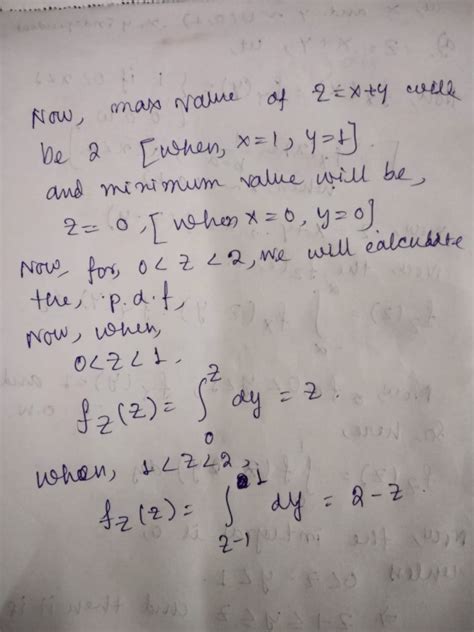 Now, max value of Z=x+y will
be 2 [when, x=1, y=1].
and minimum value will be,
Z=0, [when x=0, y=0]
Now, for, 0<Z<2, we will calculate
the, p.d.f,
Now, when,
0<Z<1.
f_Z(z) = ∫_0^z dy = z.
when, 1<Z<2,
f_Z(z) = ∫_{z-1}^1 dy = 2-z.